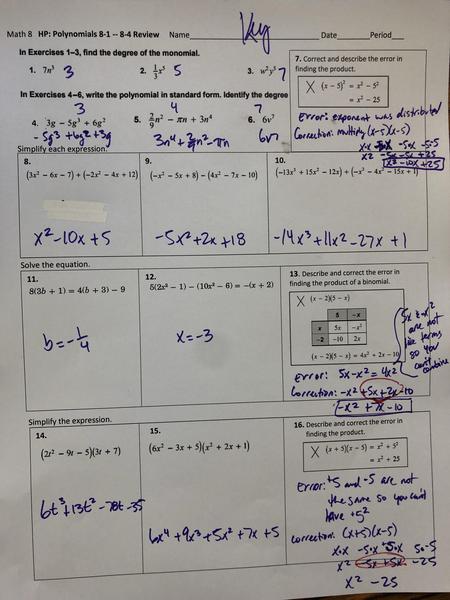 Math 8 HP: Polynomials 8-1 -- 8-4 Review Name Key Date Period
In Exercises 1–3, find the degree of the monomial.
1. 7n³ 3 2. ⅓x⁵ 5 3. w²y⁵ 7
In Exercises 4–6, write the polynomial in standard form. Identify the degree
3 4 7
4. 3g − 5g³ + 6g² 5. 2/9 n² − πn + 3n⁴ 6. 6v⁷
-5g³ +6g² +3g 3n⁴ + 2/9 n² - πn 6v⁷
7. Correct and describe the error in
finding the product.
X (x − 5)² = x² − 5²
= x² − 25
Error: exponent was distributed
Correction: multiply (x-5)(x-5)
x·x -5x -5·x -5·-5
x² -5x -5x +25
x² -10x +25
Simplify each expression.
8.
(3x² − 6x − 7) + (−2x² − 4x + 12)
x² -10x +5
9.
(−x² − 5x + 8) − (4x² − 7x − 10)
-5x² +2x +18
10.
(−13x³ + 15x² − 12x) + (−x³ − 4x² − 15x + 1)
-14x³ +11x² -27x +1
Solve the equation.
11.
8(3b + 1) = 4(b + 3) − 9
b = -1/4
12.
5(2x² − 1) − (10x² − 6) = −(x + 2)
x = -3
13. Describe and correct the error in
finding the product of a binomial.
X (x − 2)(5 − x)
5 −x
x 5x −x²
−2 −10 2x
(x − 2)(5 − x) = 4x² + 2x − 10
5x & -x²
are not
like terms
so you
can't
combine
Error: 5x - x² = 4x²
Correction: -x² +5x +2x -10
-x² +7x -10
Simplify the expression.
14.
(2t² − 9t − 5)(3t + 7)
6t³ +13t² -78t -35
15.
(6x² − 3x + 5)(x² + 2x + 1)
6x⁴ +9x³ +5x² +7x +5
16. Describe and correct the error in
finding the product.
X (x + 5)(x − 5) = x² + 5²
= x² + 25
Error: +5 and -5 are not
the same so you can't
have +5²
Correction: (x+5)(x-5)
x·x -5·x +5·x 5·-5
x² -5x +5x -25
x² -25